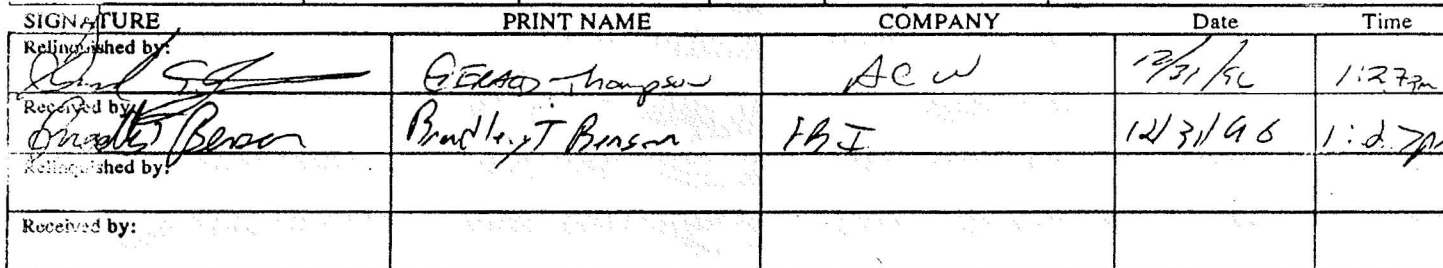 SIGNATURE PRINT NAME COMPANY Date Time
Relinquished by:
GERALD Thompson ACW 12/31/96 1:27pm
Received by:
Bradley T Benson Bradley T Benson FBI 12/31/96 1:27pm
Relinquished by:
Received by: